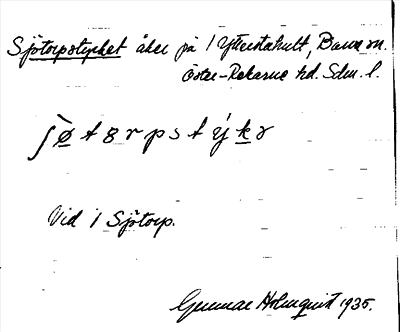 Sjötorpstycket åker på 1 Ytterstahult, Barva sn.
Öster-Rekarne hd. Sdm. l.
Vid 1 Sjötorp.
Gunnar Holmquist 1935.